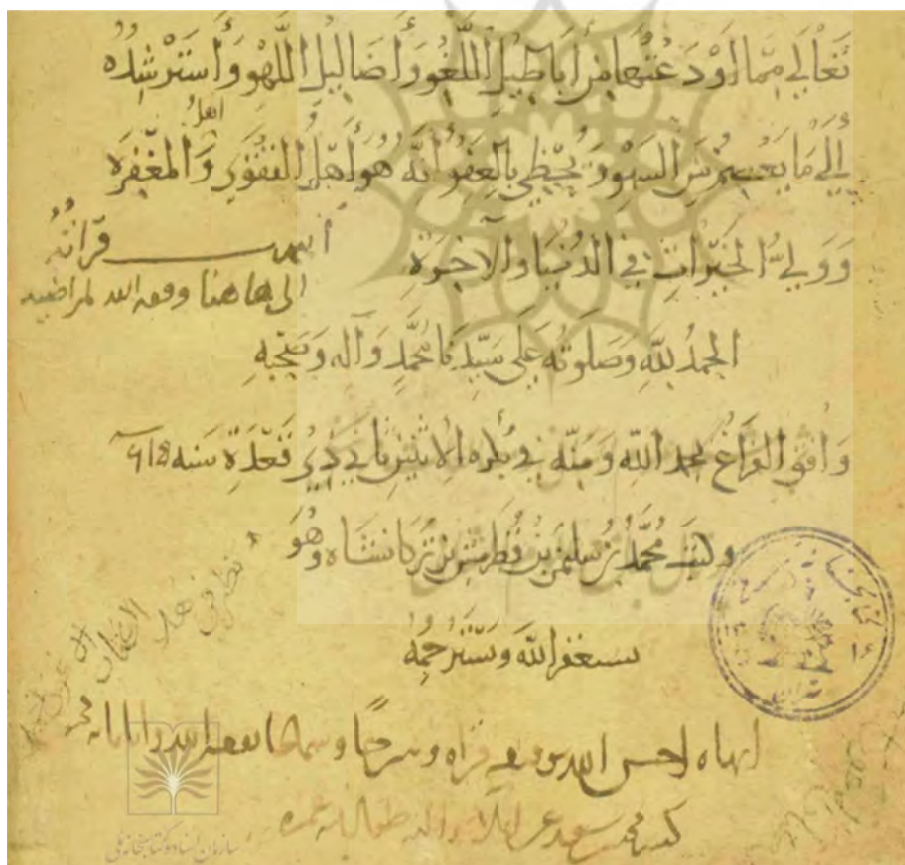 تَعَالَى مِمَّا أَوْدَعْتُهَا مِنْ أَبَاطِيلِ اللَّغْوِ وَأَضَالِيلِ اللَّهْوِ وَأَسْتَرْشِدُهُ
اهل
إِلَى مَا يَعْصِمُ مِنَ السَّهْوِ وَيُحْظِي بِالْعَفْوِ إِنَّهُ هُوَ أَهْلُ التَّقْوَى وَالْمَغْفِرَة
وَوَلِيُّ الْخَيْرَاتِ فِي الدُّنْيَا وَالْآخِرَةِ
انتهت قرائته
الى هاهنا وفقه الله لمراضيه
الحمدُ لِلّهِ وصَلَوتُه عَلَى سَيِّدِنَا مُحَمَّدٍ وَآله وَصَحْبِهِ
وَافَقَ الفَرَاغُ بحمد اللّهِ وَمَنِّه في بُكرة الاثنين ثاني ذي قَعْدَةِ سَنه
وكتبَ مُحَمَّدُ بْنُ سُليمنَ بْنِ قُطْرمِشَ بْنِ تُركَانشَاه وَهُوَ
يستغفر اللّهَ وَيَسْتَرْحِمُهُ
انهاه احسن الله توفيقه قراه وشرحًا وسماعا نفعه الله وايانا به
كتبه محمد بن سعيد
سازمان اسناد و کتابخانه ملی